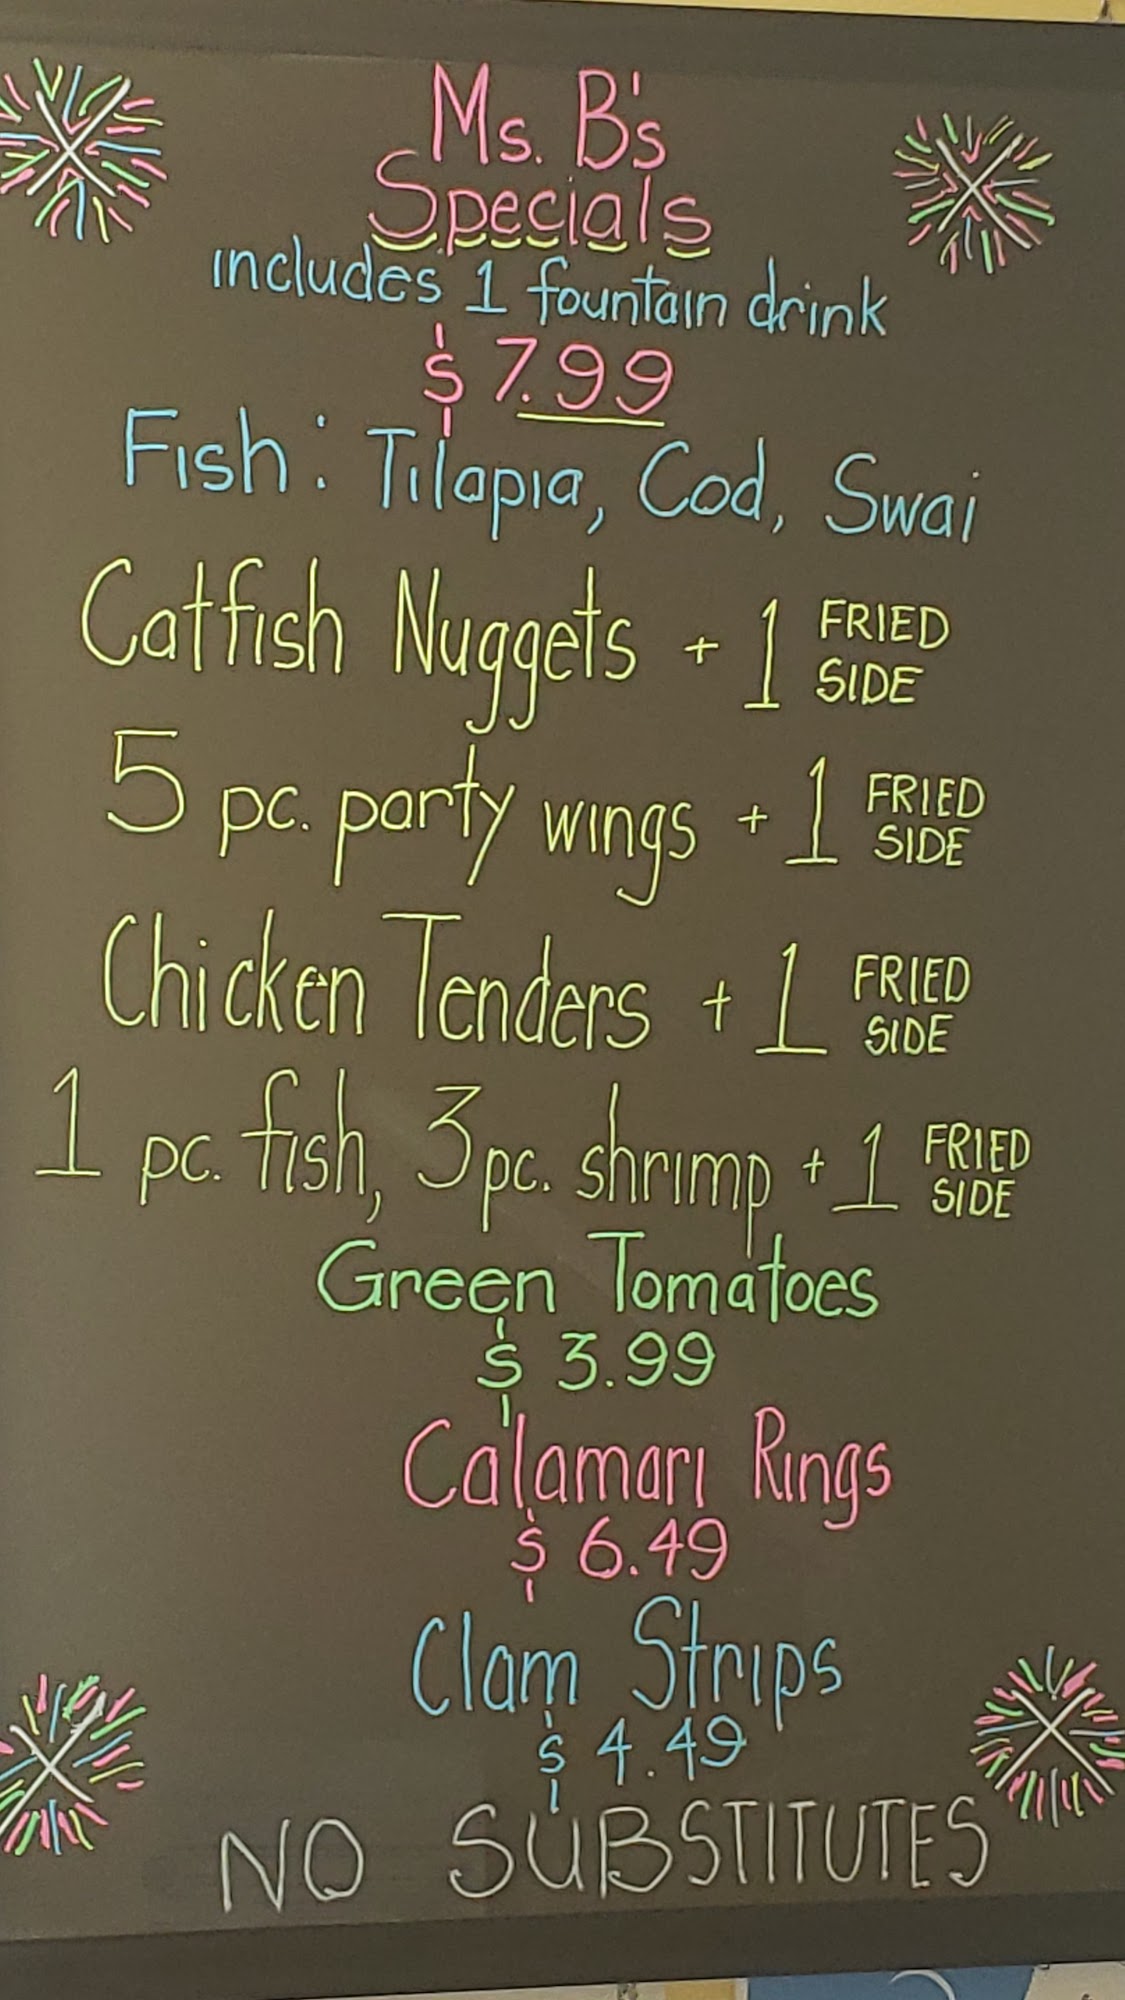 Ms. B's
Specials
includes 1 fountain drink
$ 7.99
Fish: Tilapia, Cod, Swai
Catfish Nuggets + 1 FRIED SIDE
5 pc. party wings + 1 FRIED SIDE
Chicken Tenders + 1 FRIED SIDE
1 pc. fish, 3 pc. shrimp + 1 FRIED SIDE
Green Tomatoes
$ 3.99
Calamari Rings
$ 6.49
Clam Strips
$ 4.49
NO SUBSTITUTES